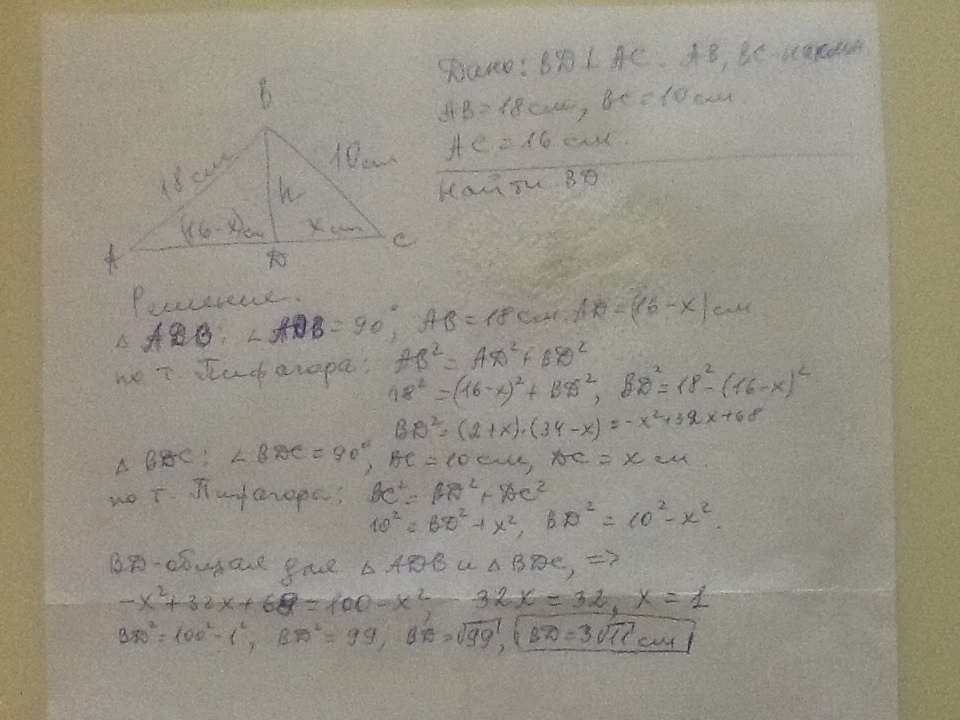 Дано: BD⊥AC. AB, BC-наклон
AB=18 см, BC=10 см.
AC=16 см.
Найти BD
B
18 см
10 см
h
(16-x)см
x см
A
D
C
Решение.
△ ADB: ∠ADB=90°, AB=18 см. AD=(16-x) см
по т. Пифагора: AB²=AD²+BD²
18²=(16-x)²+BD², BD²=18²-(16-x)²
BD²=(2+x)·(34-x)=-x²+32x+68
△ BDC: ∠BDC=90°, BC=10 см, DC=x см.
по т. Пифагора: BC²=BD²+DC²
10²=BD²+x², BD²=10²-x².
BD-общая для △ ADB и △ BDC, =>
-x²+32x+68=100-x², 32x=32, x=1
BD²=100²-1², BD²=99, BD=√99, BD=3√11 см